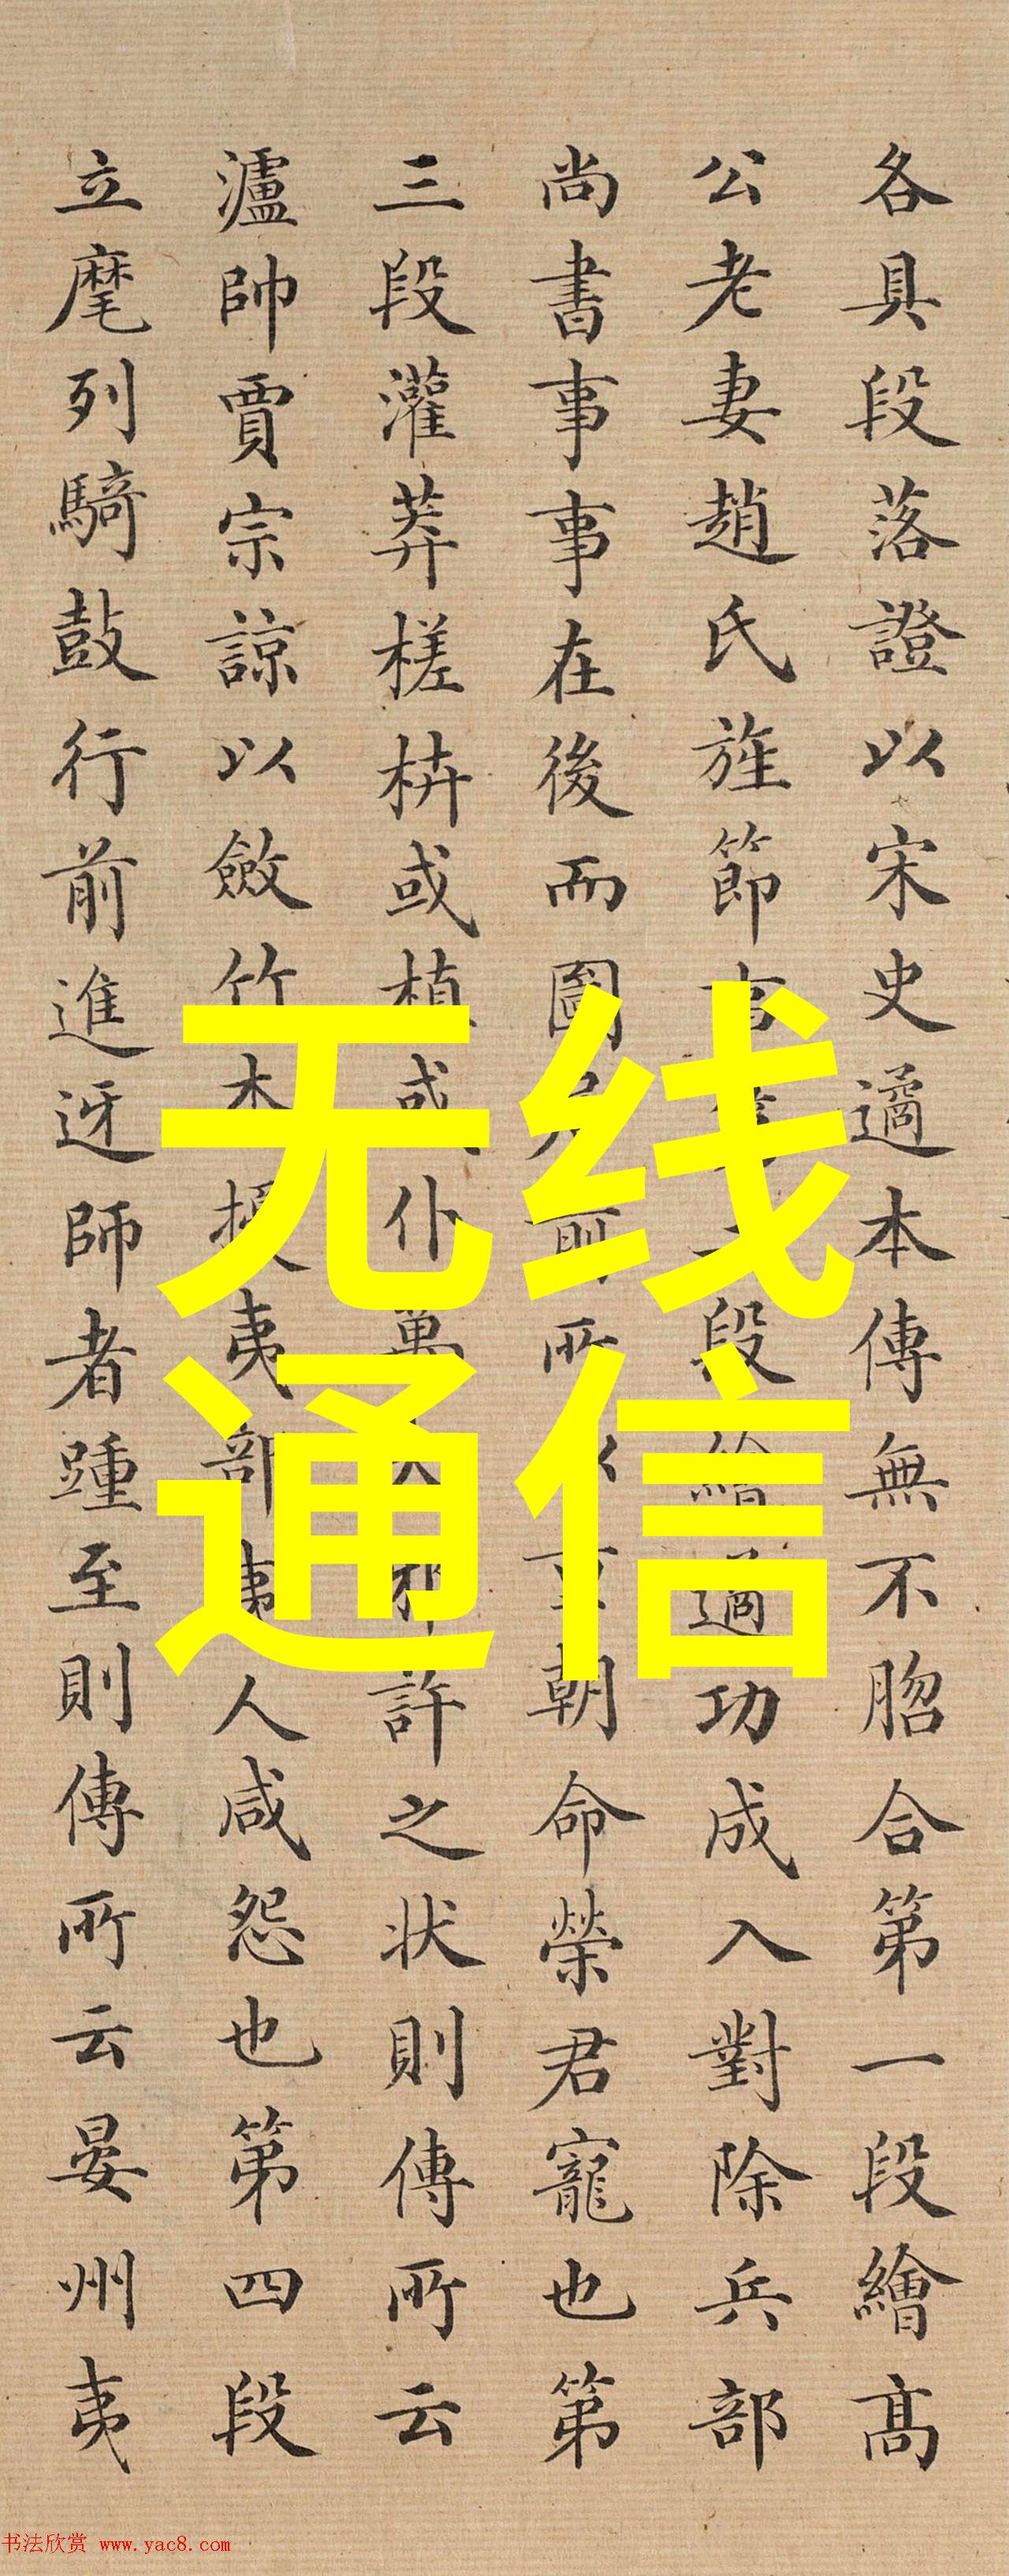 各具段落證以宋史遹本傳無不脗合第一段繪高
公老妻趙氏旌節段繪遹功成入對除兵部
尚書事事在後而圖居前所以重朝命榮君寵也第
三段灌莽槎枿或植或仆萬邪許之状則傳所云
瀘帥賈宗諒以斂竹木擾夷部夷人咸怨也第四段
立麾列騎鼓行前進迓師者踵至則傳所云晏州夷
无线
通信
书法欣赏 www.yac8.com